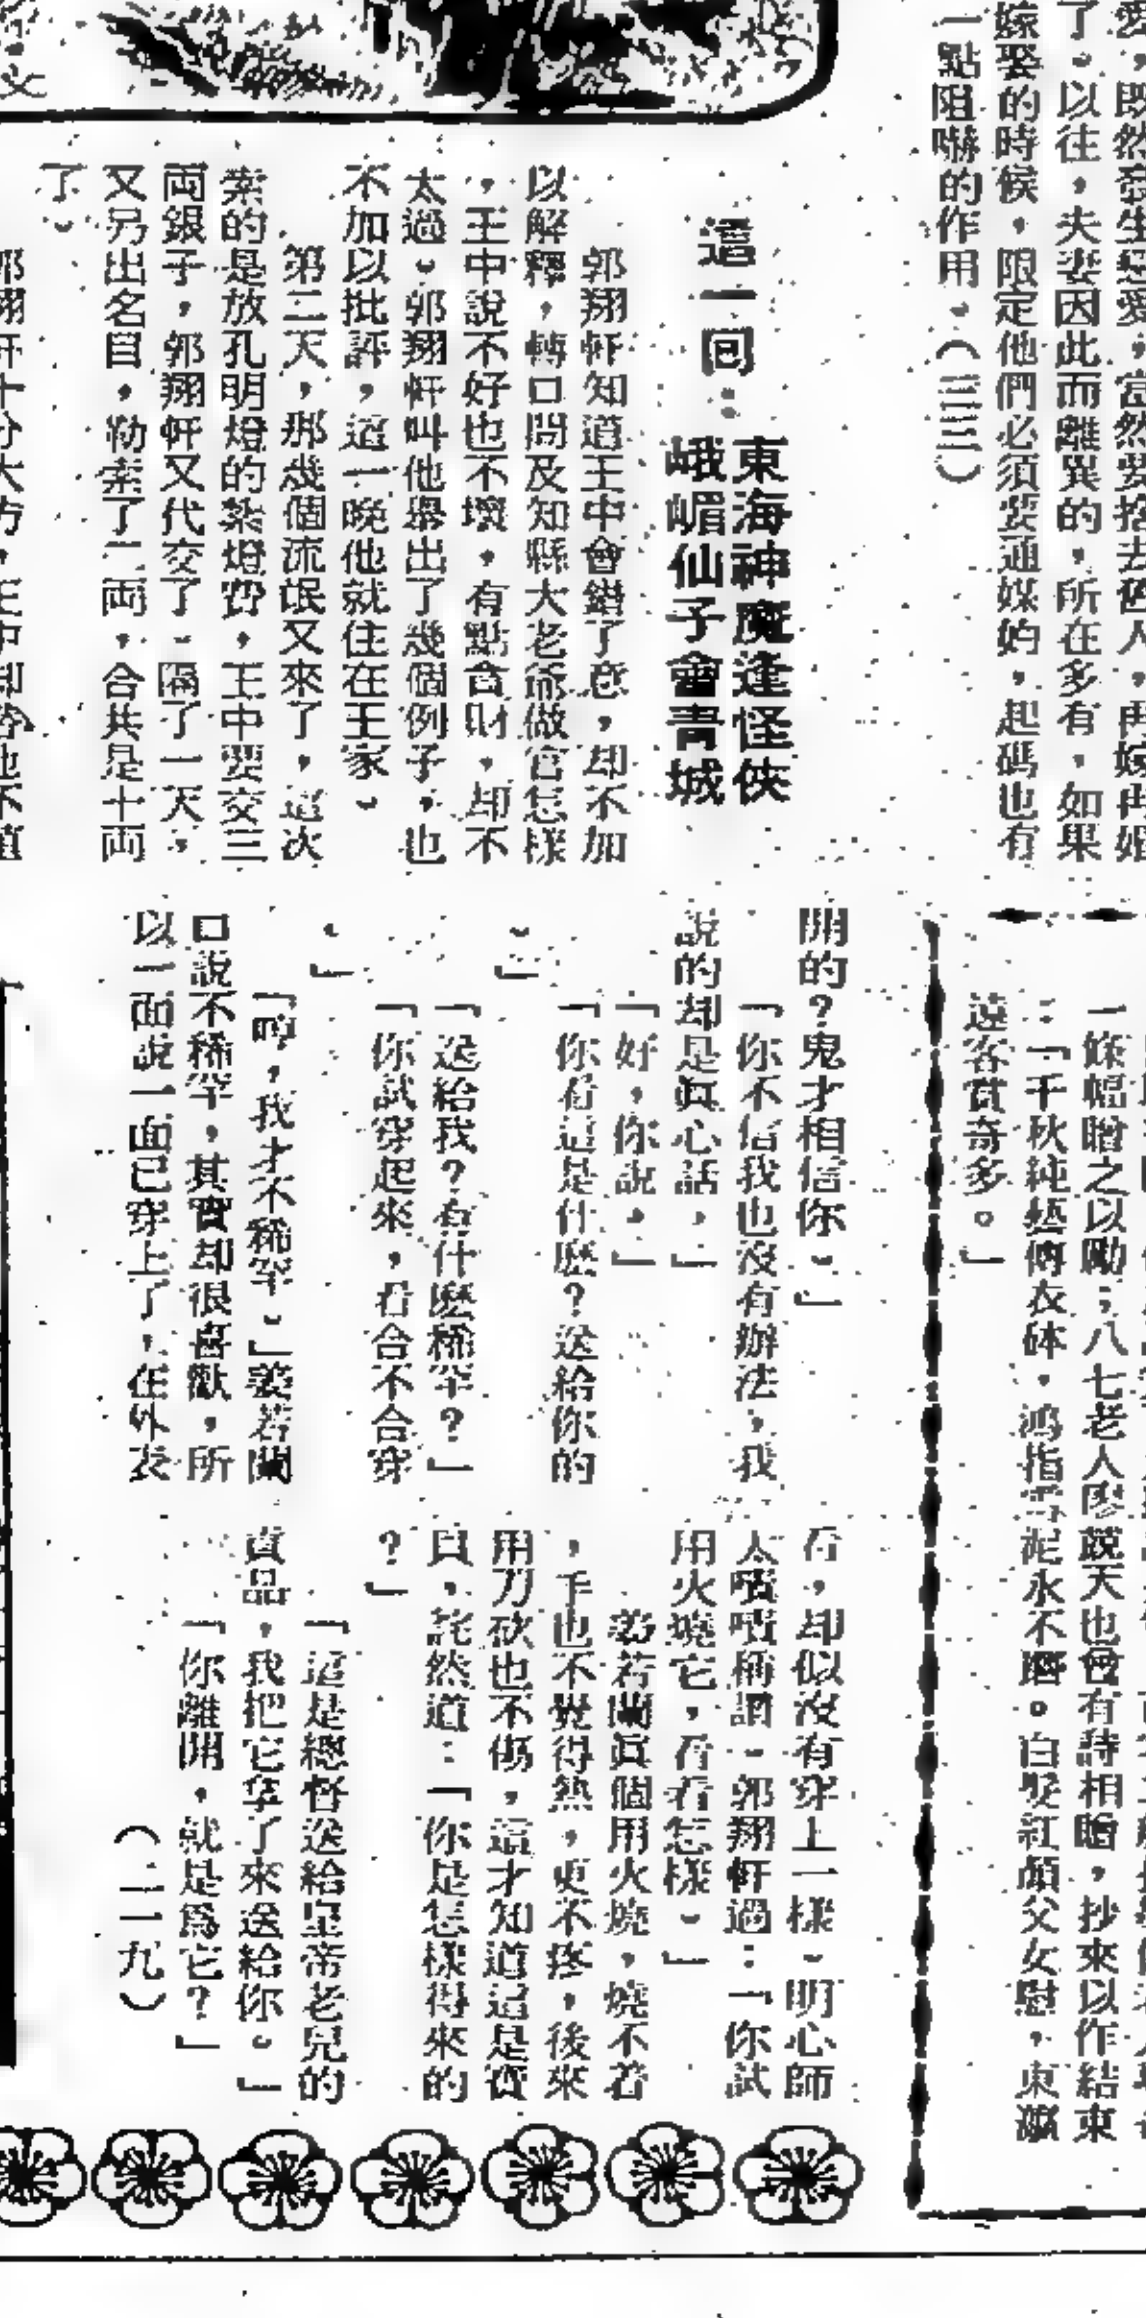 愛，既然發生戀愛，當然要捨去舊人，再嫁再婚
了。以往，夫妻因此而離異的，所在多有，如果
嫁娶的時候，限定他們必須要通媒妁，起碼也有
一點阻嚇的作用。（三三）
這一回：
東海神魔逢怪俠
峨嵋仙子會青城
郭翔軒知道王中會錯了意，却不加
以解釋，轉口問及知縣大老爺做官怎樣
，王中說不好也不壞，有點貪財，却不
太過。郭翔軒叫他舉出了幾個例子，也
不加以批評，這一晚他就住在王家。
第二天，那幾個流氓又來了，這次
索的是放孔明燈的紮燈費，王中要交三
両銀子，郭翔軒又代交了。隔了一天，
又另出名目，勒索了二両，合共是十両
了。
郭翔軒十分大方，王中却替他不值
一條幅贈之以勵；八七老人廖競天也曾有詩相贈，抄來以作結束
：「千秋純藝傳衣砵，鴻指雪泥永不磨。白髮紅顏父女慰，東瀛
遠客賞奇多。」
開的？鬼才相信你。」
「你不信我也沒有辦法，我
說的却是眞心話，」
「好，你說，」
「你看這是什麼？送給你的
。」
「送給我？有什麼稀罕？」
「你試穿起來，看合不合穿
。」
「哼，我才不稀罕。」姜若蘭
口說不稀罕，其實却很喜歡，所
以一面說一面已穿上了，在外表
看，却似沒有穿上一樣。明心師
太嘖嘖稱讚。郭翔軒過：「你試
用火燒它，看看怎樣。」
姜若蘭眞個用火燒，燒不着
，手也不覺得熱，更不疼，後來
用刀砍也不傷，這才知道這是寶
貝，詫然道：「你是怎樣得來的
？」
「這是總督送給皇帝老兒的
貢品，我把它拿了來送給你。」
「你離開，就是爲它？」
（二一九）